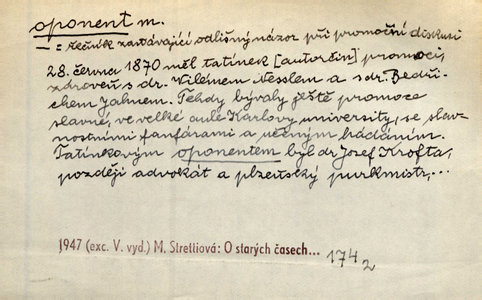 oponent m.
— = řečník zastávající odlišný názor při promoční diskusi
28. června 1870 měl tatínek [autorčin] promoci,
zároveň s dr. Vilémem Nesslem a s dr. Bedři-
chem Jahnem. Tehdy bývaly ještě promoce
slavné, ve velké aule Karlovy university, se slav-
nostními fanfárami a učeným hádáním.
Tatínkovým oponentem byl dr Josef Krofta,
později advokát a plzeňský purkmistr,...
1947 (exc. V. vyd.) M. Strettiová: O starých časech... 174 2